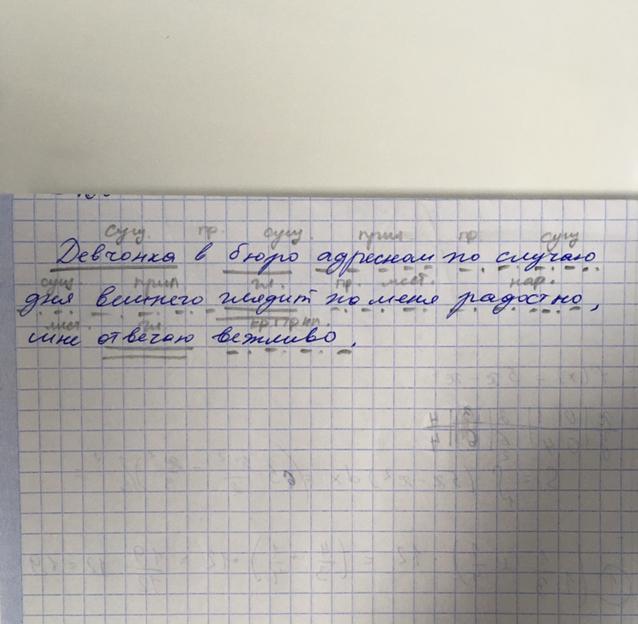 сущ. пр. сущ. прил пр. сущ
Девчонка в бюро адресном по случаю
сущ. прил гл. пр. мест. нар.
дня вешнего глядит на меня радостно,
мест. гл.
мне отвечаю вежливо.